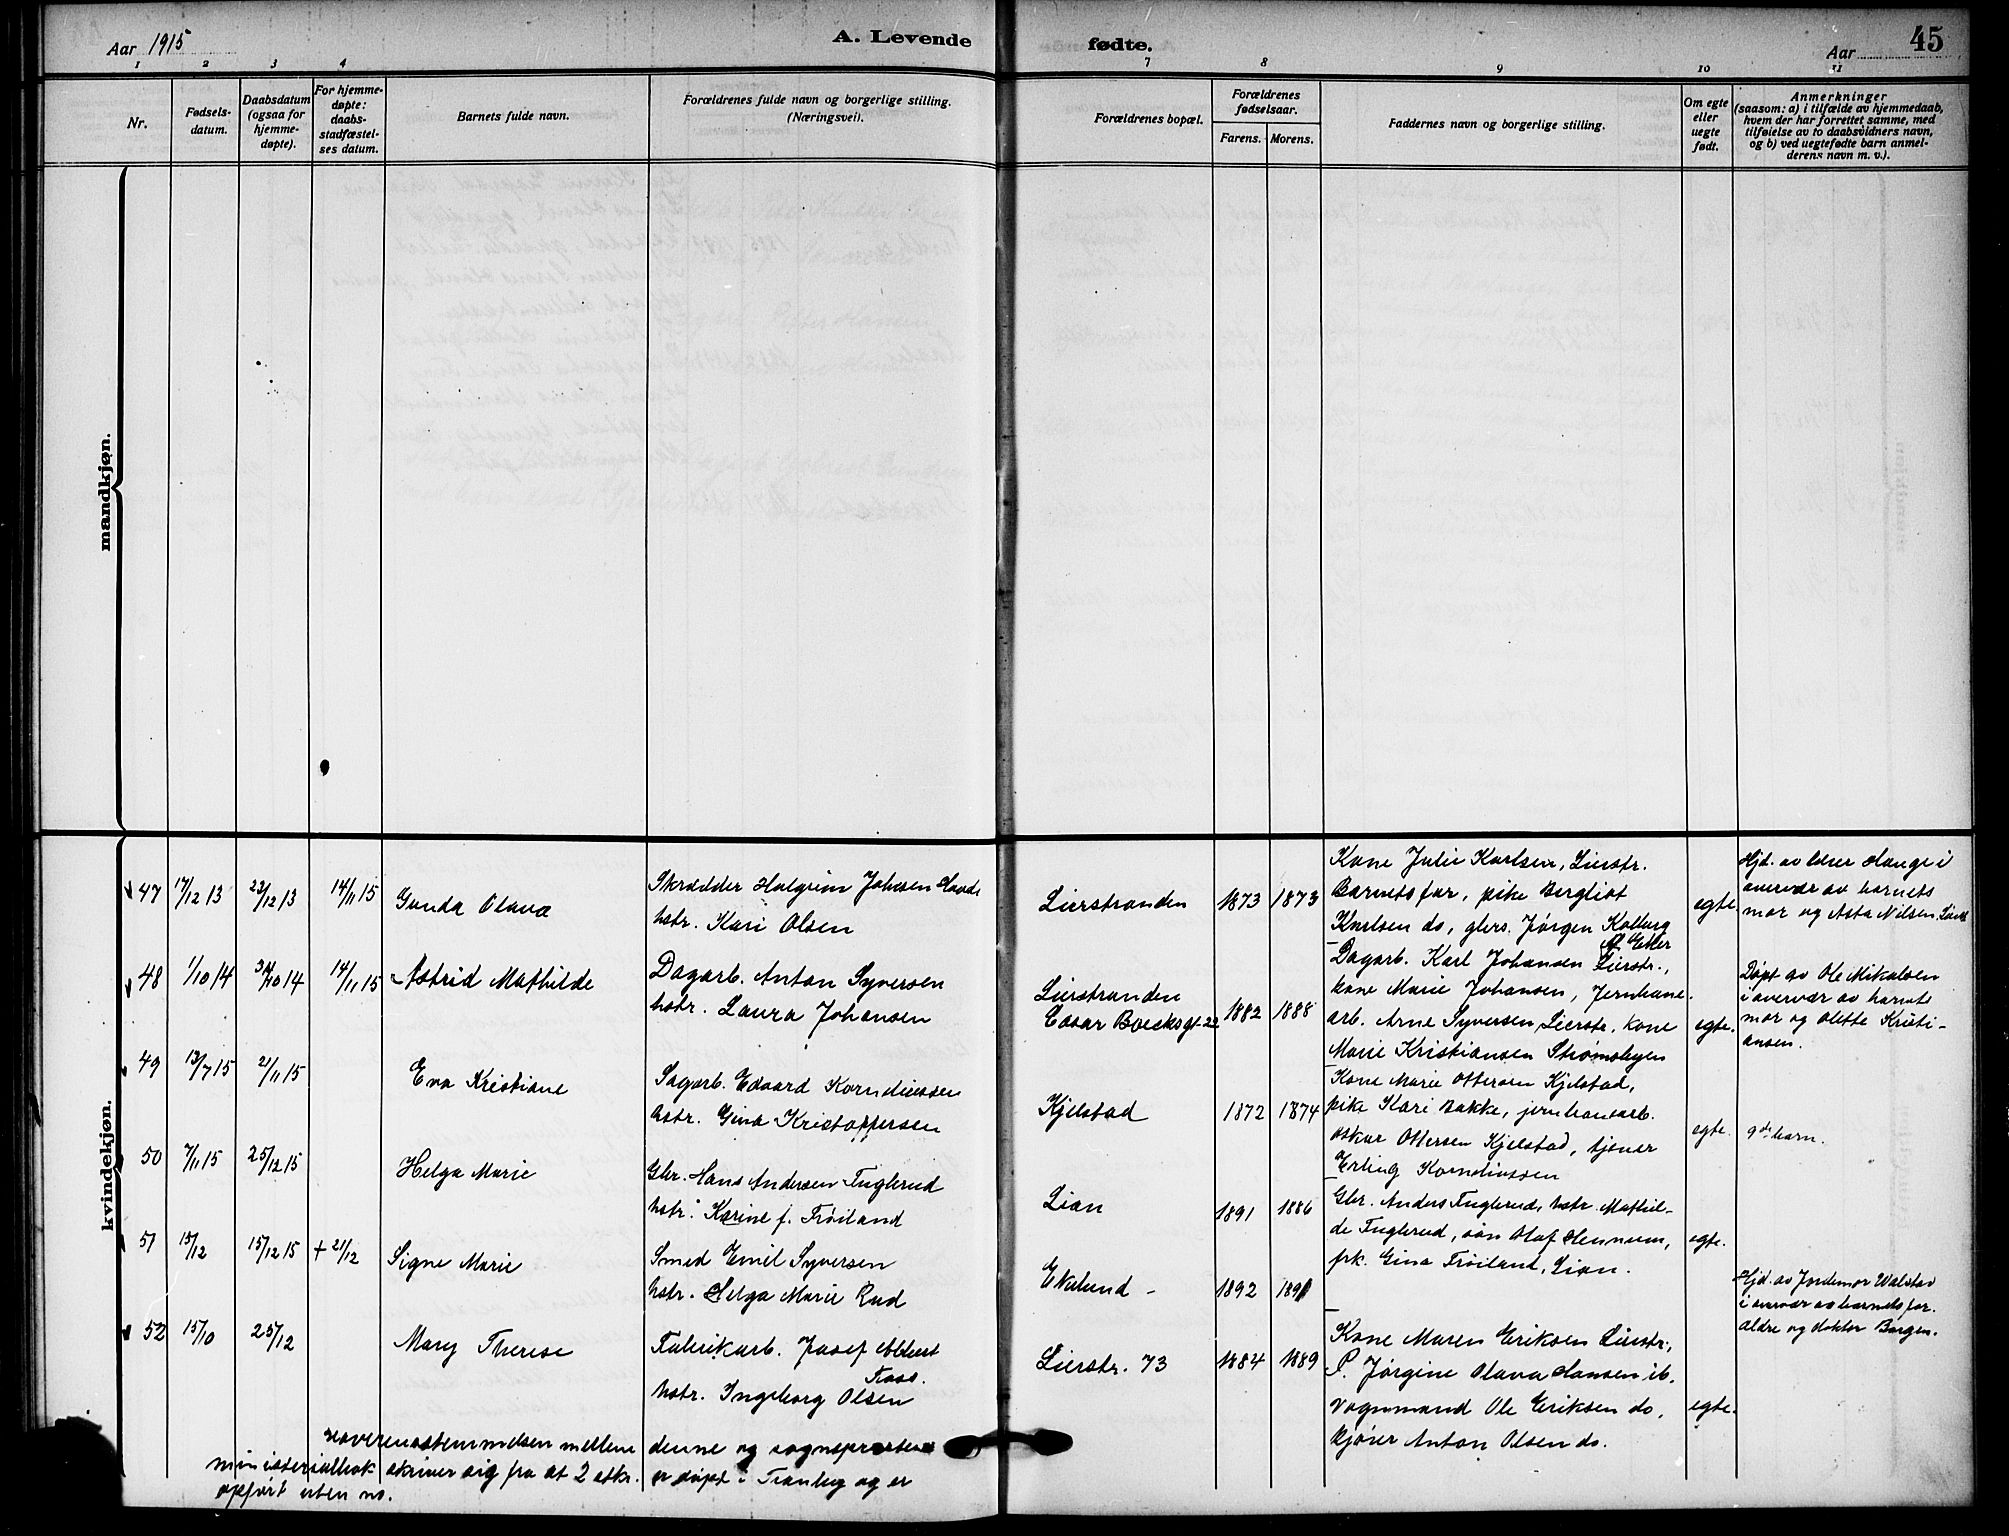 Aar 1915
A. Levende
fødte.
Aar
45
1 2 3 4 7 8 9 10 11
Nr.
Fødsels-
datum.
Daabsdatum
(ogsaa for
hjemme-
døpte).
For hjemme-
døpte:
daabs-
stadfæstel-
ses datum.
Barnets fulde navn.
Forældrenes fulde navn og borgerlige stilling.
(Næringsvei).
Forældrenes bopæl.
Forældrenes
fødselsaar.
Farens. Morens.
Faddernes navn og borgerlige stilling.
Om egte
eller
uegte
født.
Anmerkninger
(saasom: a) i tilfælde av hjemmedaab,
hvem der har forrettet samme, med
tilføielse av to daabsvidners navn,
og b) ved uegtefødte barn anmel-
derens navn m. v.).
mandkjøn.
kvindekjøn.
47 17/12 13 23/12 13 14/11 15 Gunda Olava
Skrædder Halgrim Johnsen
hstr. Kari Olsen
Lierstranden 1873 1873
Kone Julie Karlsen, Lierstr.
Barnets far, pike Bergliot
Karlsen do, glers. Jørgen Kolberg
egte
Hjd. av lærer Hauge i
overvær av barnets
mor og Asta Nilsen,
48 1/10 14 14/11 15 Astrid Mathilde
Dagarb. Anton Syversen
hstr. Laura Johansen
Lierstranden
Boecksgt. 22 1882 1888
Dagarb. Karl Johansen Lierstr.,
kone Marie Johansen, Jernbane-
arb. Arne Syversen Lierstr., kone
Marie Kristiansen
egte.
Døpt av Ole Mikalsen
i overvær av barnets
mor og Olette Kristi-
ansen.
49 13/7 15 21/11 15 Eva Kristiane
Sagarb. Edvard Korneliussen
hstr. Gina Kristoffersen
Kjelstad 1872 1874
Kone Marie Ottersen Kjelstad,
pike Kari Bakke, jernbanearb.
Oskar Ottersen Kjelstad, tjener
Erling Korneliussen
egte. 9de barn.
50 7/11 15 25/12 15 Helga Marie
Gbr. Hans Andersen Fuglerud
hstr. Karine f. Trøiland
Lian 1891 1886
Gbr. Anders Fuglerud, hstr. Mathil-
de Fuglerud, søn Olaf Hennum,
frk. Gina Trøiland, Lian.
egte.
51 15/12 15/12 15 + 21/12 Signe Marie
Smed Emil Syversen
hstr. Helga Marie Rud
Ekelund - 1892 1891
Hjd. av Jordemor Walstad
i overvær av barnets for-
ældre og doktor Borgen.
52 15/10 25/12 Mary Therese
Fabrikarb. Josef Albert
Foss.
hstr. Ingeborg Olsen
Lierstr. 73 1884 1889
Kone Maren Eriksen Lierstr.,
P. Jørgine Olava Hansen ib.
Vognmand Ole Eriksen do,
kjører Anton Olsen do.
egte.
uoverensstemmelsen mellem denne og sognepresten
ministerialbok skriver sig fra at 2 stkr. er døpt i Tranby og er
opført uten no.